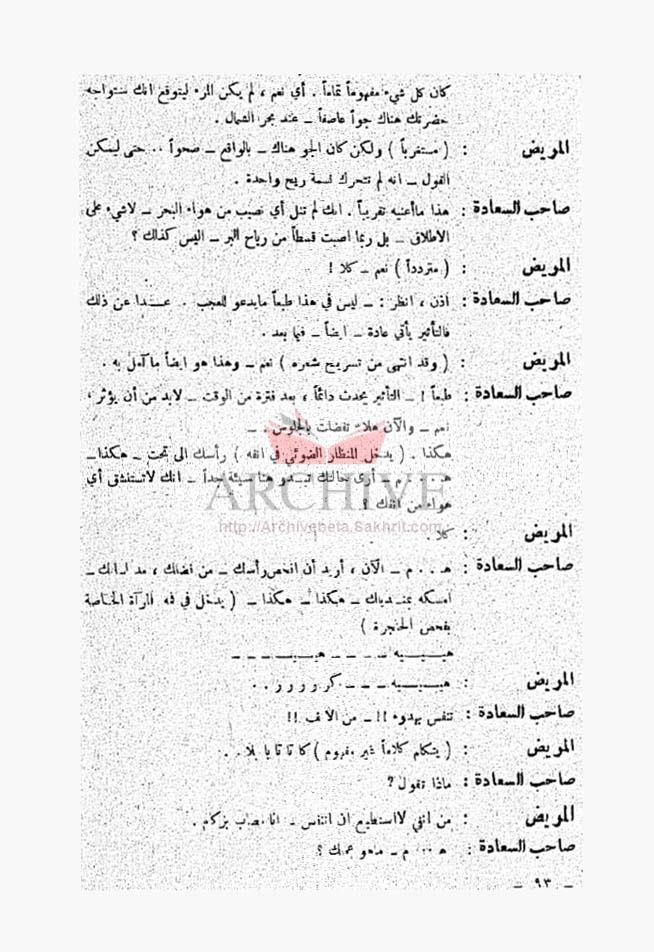 كان كل شيء مفهوماً تماماً . أي نعم ، لم يكن المرء ليتوقع انك ستواجه
حضرتك هناك جواً عاصفاً ــ عند بحر الشمال .
المريض : ( مستغرباً ) ولكن كان الجو هناك ــ بالواقع ــ صحواً .. حتى ليمكن
القول ــ انه لم تتحرك نسمة ريح واحدة .
صاحب السعادة : هذا ماأعنيه تقريباً . انك لم تنل أي نصيب من هواء البحر ــ لاشيء على
الأطلاق ــ بل ربما اصبت قسطاً من رياح البر ــ اليس كذلك ؟
المريض : ( متردداً ) نعم ــ كلا !
صاحب السعادة : اذن ، انظر : ــ ليس في هذا طبعاً مايدعو للعجب . عـدا عن ذلك
فالتأثير يأتي عادة ــ ايضاً ــ فيما بعد .
المريض : ( وقد انتهى من تسريح شعره ) نعم ــ وهذا هو ايضاً ما آمل به .
صاحب السعادة : طبعاً ! ــ التأثير يحدث دائماً ، بعد فترة من الوقت ــ لابد من أن يؤثر ،
نعم ــ والآن هلا تفضلت بالجلوس . ــ
هكذا . ( يدخل المنظار الضوئي في انفه ) رأسك الى تحت ــ هكذا ــ
هـ . . . م ــ أرى حالتك تبدو هنا سيئة جداً ــ انك لاتستنشق أي
هواء من انفك ؟
ARCHIVE
http://Archivebeta.Sakhrit.com
المريض : كلا .
صاحب السعادة : هـ . . . م ــ الآن ، أريد أن افحص رأسك ــ من فضلك ، مد لسانك ــ
امسكه بمنديلك ــ هكذا ــ هكذا ــ ( يدخل في فمه المرآة الخاصة
بفحص الحنجرة )
هيـيـيـه ــ ــ ــ ــ هيـيـيـ ــ ــ ــ ــ
المريض : هيـيـيـه ــ ــ ــ كر و و و و . .
صاحب السعادة : تنفس بهدوء !! ــ من الأنف !!
المريض : ( يتكلم كلاماً غير مفهوم ) كا تا تا يا بلا . .
صاحب السعادة : ماذا تقول ?
المريض : من انفي لااستطيع ان اتنفس ــ انا مصاب بزكام .
صاحب السعادة : هـ ... م ــ ماهو عملك ؟
ــ ٩٣ ــ